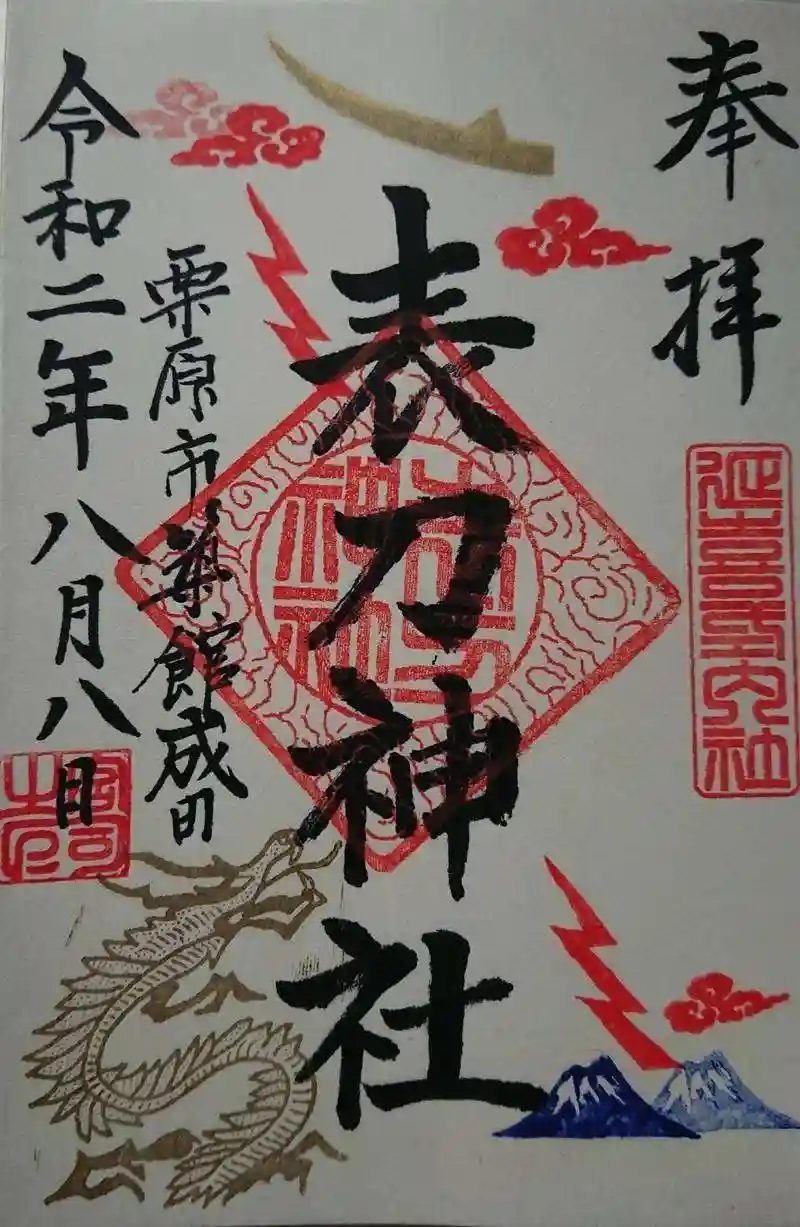 奉拝
延喜式内社
表刀神社
栗原市築館成田
令和二年八月八日